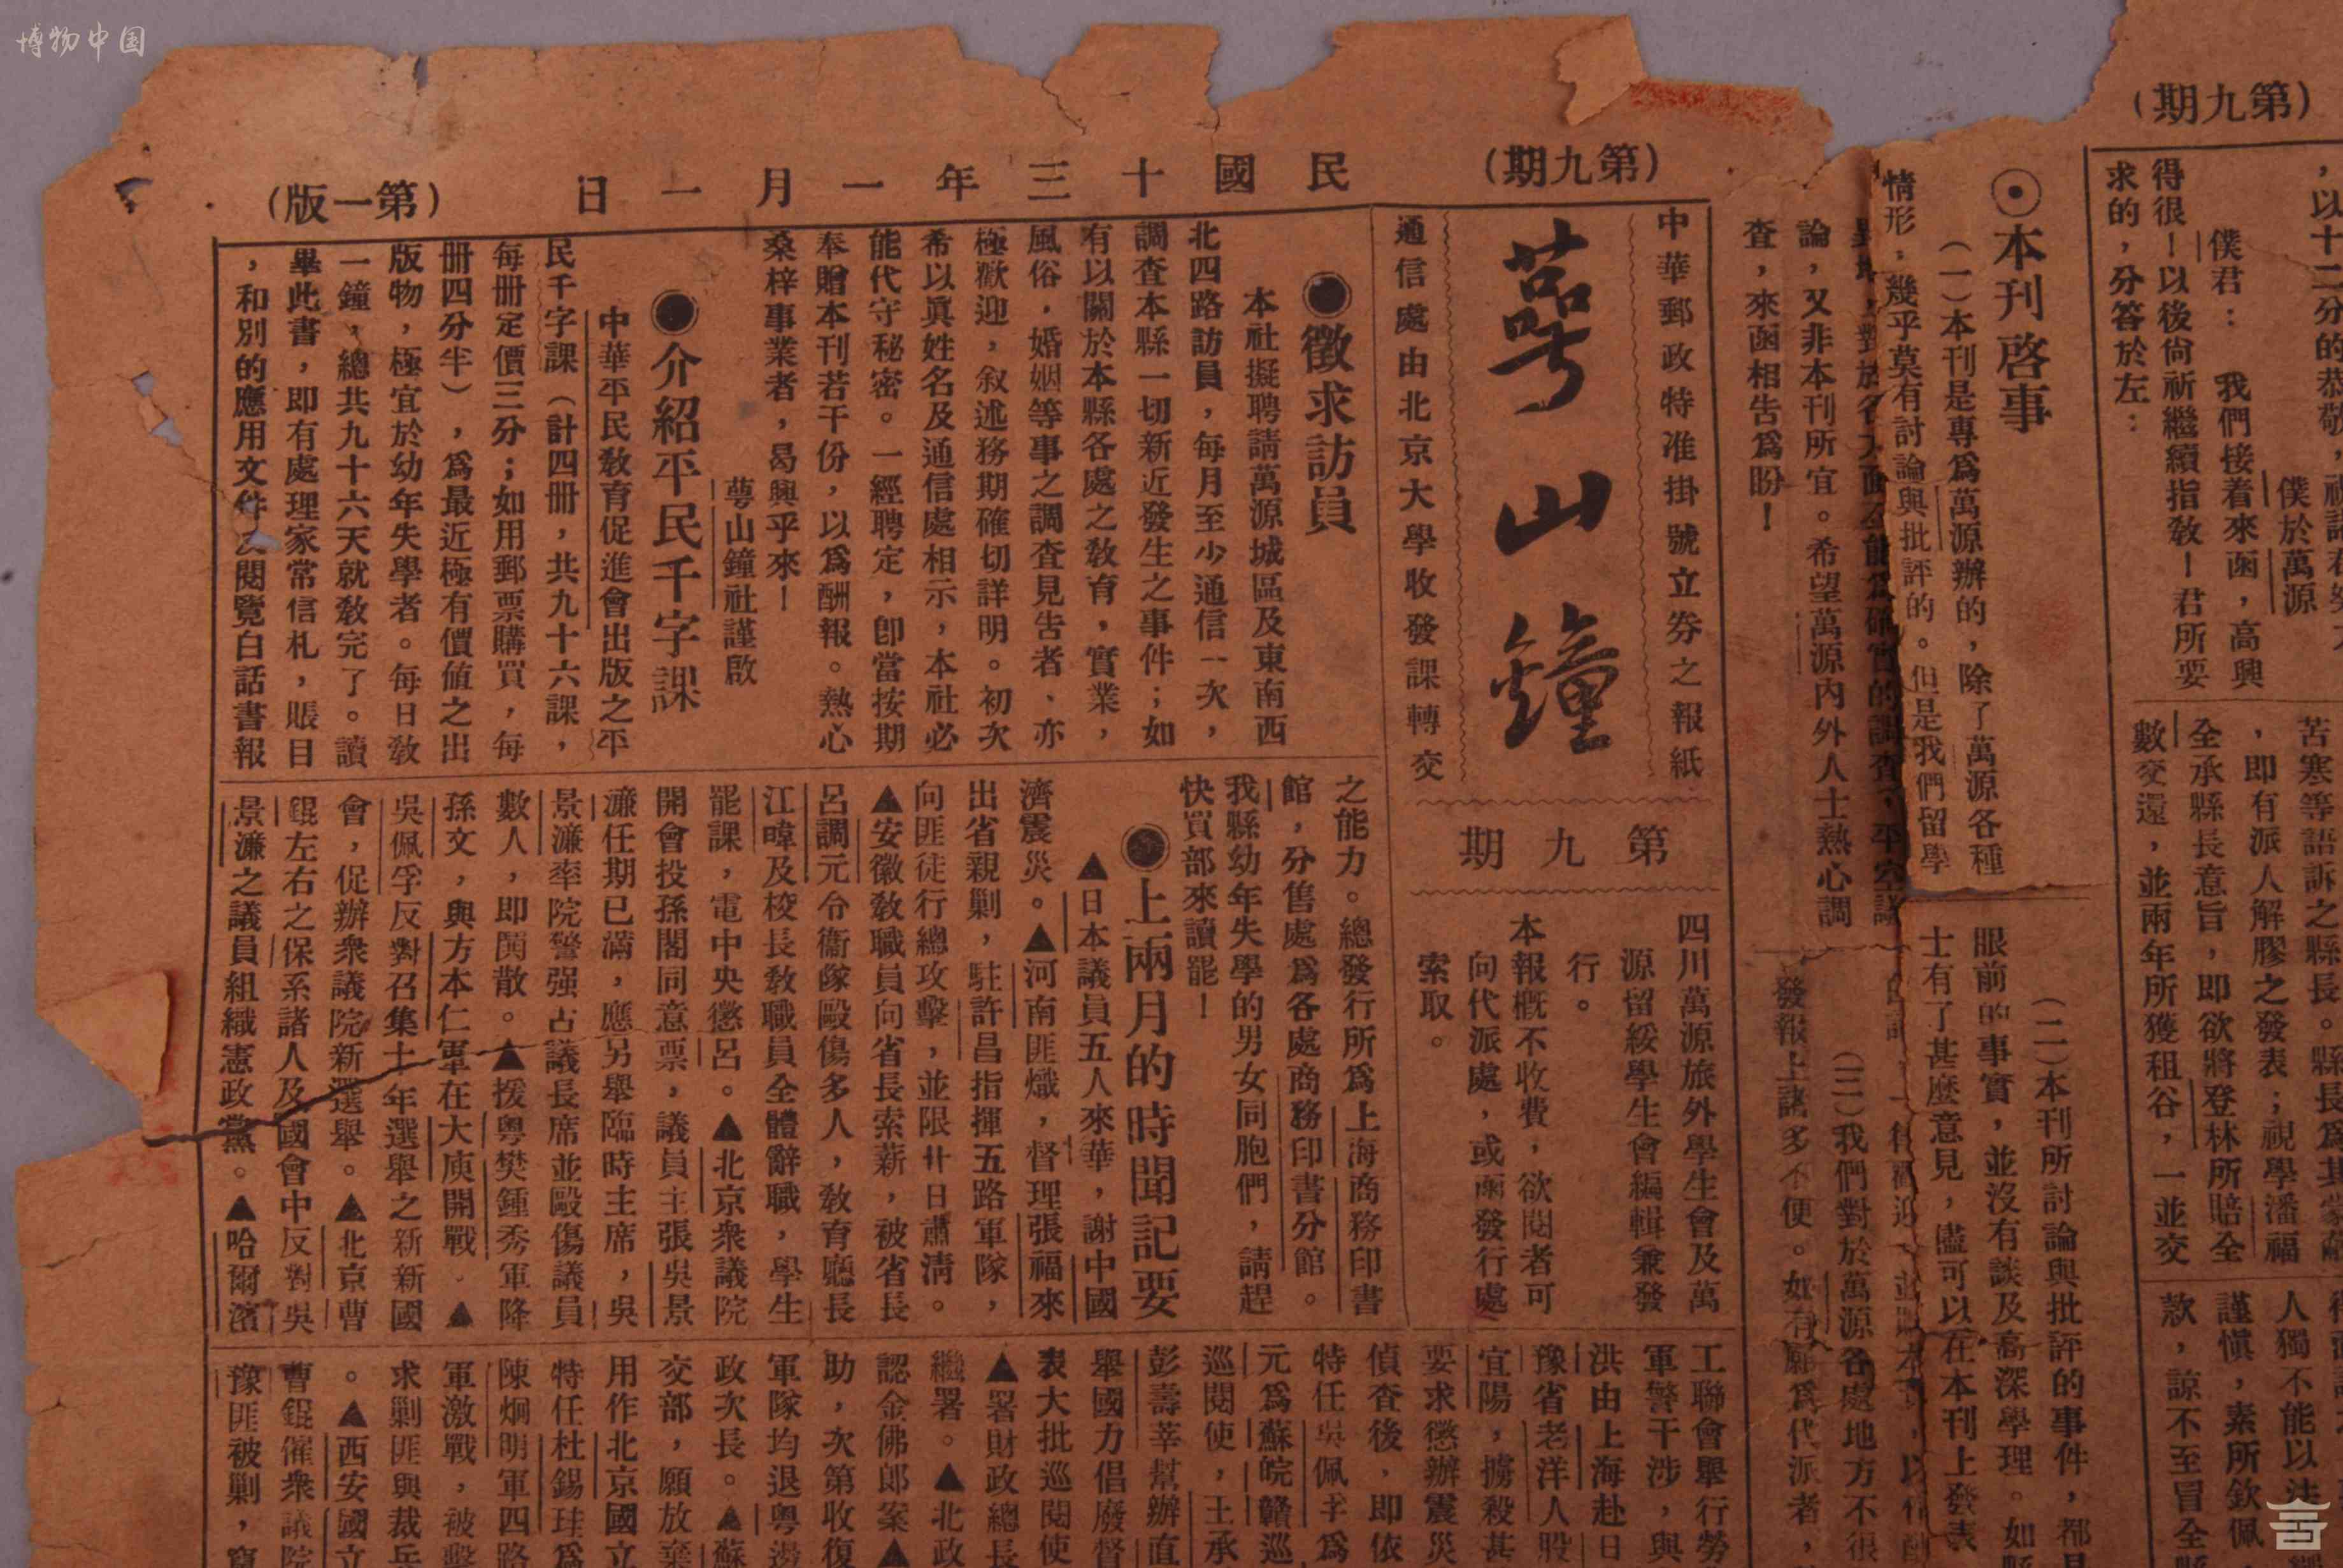 博物中国
(第九期)
民國十三年一月一日
(第一版)
中華郵政特准掛號立券之報紙
萼山鐘
通信處由北京大學收發課轉交
第九期
四川萬源旅外學生會及萬
源留綏學生會編輯兼發
行。
本報概不收費,欲閱者可
向代派處,或函發行處
索取。
●徵求訪員
本社擬聘請萬源城區及東南西
北四路訪員,每月至少通信一次,
調查本縣一切新近發生之事件;如
有以關於本縣各處之敎育,實業,
風俗,婚姻等事之調查見告者、亦
極歡迎,叙述務期確切詳明。初次
希以眞姓名及通信處相示,本社必
能代守秘密。一經聘定,卽當按期
奉贈本刊若干份,以爲酬報。熱心
桑梓事業者,曷興乎來!
萼山鐘社謹啟
●介紹平民千字課
中華平民敎育促進會出版之平
民千字課(計四冊,共九十六課,
每冊定價三分;如用郵票購買,每
冊四分半),爲最近極有價値之出
版物,極宜於幼年失學者。每日敎
一鐘,總共九十六天就敎完了。讀
畢此書,即有處理家常信札,賬目
,和別的應用文件 閱覽白話書報
之能力。總發行所爲上海商務印書
館,分售處爲各處商務印書分館。
我縣幼年失學的男女同胞們,請趕
快買部來讀罷!
●上兩月的時聞記要
▲日本議員五人來華,謝中國
濟震災。▲河南匪熾,督理張福來
出省親剿,駐許昌指揮五路軍隊,
向匪徒行總攻擊,並限廿日肅清。
▲安徽敎職員向省長索薪,被省長
呂調元令衞隊毆傷多人,敎育廳長
江暐及校長敎職員全體辭職,學生
罷課,電中央懲呂。▲北京衆議院
開會投孫閣同意票,議員主張吳景
濂任期已滿,應另舉臨時主席,吳
景濂率院警强占議長席並毆傷議員
數人,即鬨散。▲援粤樊鍾秀軍降
孫文,與方本仁軍在大庾開戰。▲
吳佩孚反對召集十年選舉之新新國
會,促辦衆議院新選舉。▲北京曹
錕左右之保系諸人及國會中反對吳
景濂之議員組織憲政黨。▲哈爾濱
工聯會舉行勞
軍警干涉,與
洪由上海赴日
豫省老洋人股
宜陽,擄殺甚
要求懲辦震災
偵查後,即依
特任吳佩孚爲
元爲蘇皖贛巡
巡閱使,王承
彭壽莘幫辦直
舉國力倡廢督
表大批巡閱使
▲署財政總長
繼署。▲北政
認金佛郎案▲
助,次第收復
軍隊均退粤邊
政次長。▲蘇
交部,願放棄
用作北京國立
特任杜錫珪爲
陳烱明軍四路
軍激戰,被擊
求剿匪與裁兵
。▲西安國立
曹錕催衆議院
豫匪被剿,竄
(第九期)
⊙本刊啓事
(一)本刊是專爲萬源辦的,除了萬源各種
情形,幾乎莫有討論與批評的。但是我們留學
論,又非本刊所宜。希望萬源內外人士熱心調
查,來函相告爲盼!
(二)本刊所討論與批評的事件,都是
眼前的事實,並沒有談及高深學理。如
士有了甚麼意見,儘可以在本刊上發表
(三)我們對於萬源各處地方不很
發報上諸多不便。如有願爲代派者,
,以十二分的恭敬,
僕於萬源
僕君: 我們接着來函,高興
得很!以後尙祈繼續指敎!君所要
求的,分答於左:
苦寒等語訴之縣長。縣長爲其
,即有派人解膠之發表;視學潘福
全承縣長意旨,即欲將登林所賠全
數交還,並兩年所獲租谷,一並交
人獨不能以法
謹愼,素所欽佩
款,諒不至冒全